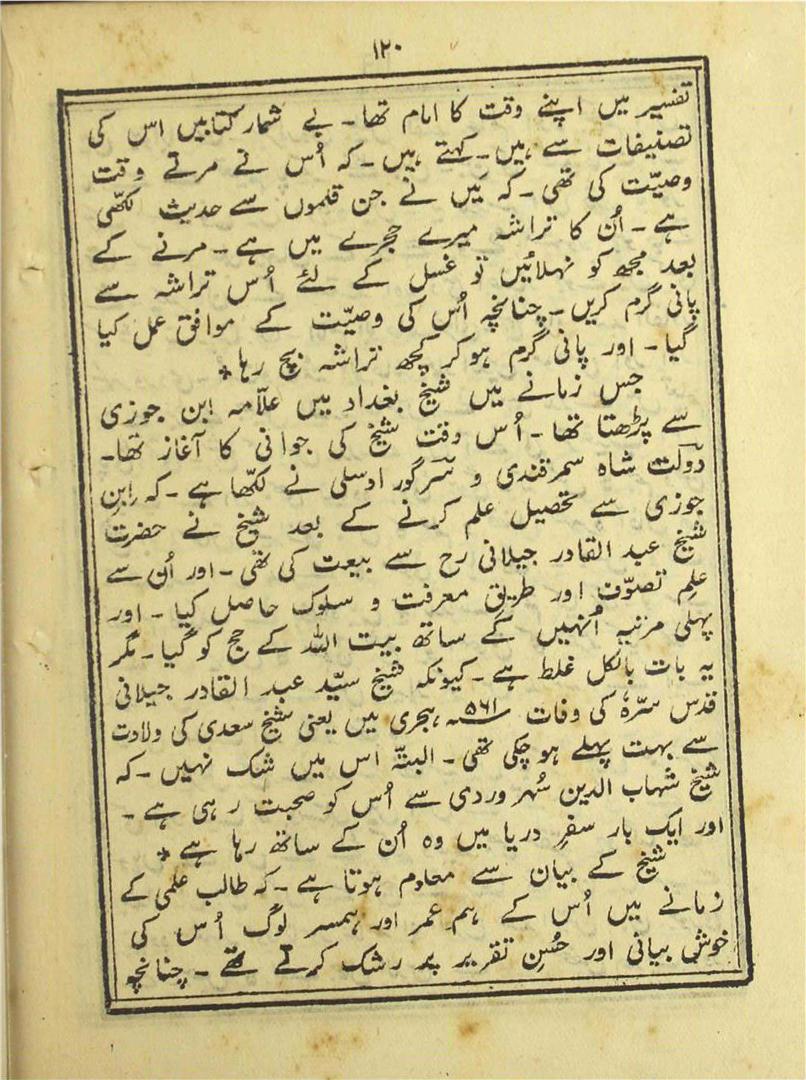 ۱۲۰
تفسیر میں اپنے وقت کا امام تھا۔ بے شمار کتابیں اس کی
تصنیفات سے ہیں۔ کہتے ہیں۔ کہ اُس نے مرتے وقت
وصیّت کی تھی۔ کہ مَیں نے جن قلموں سے حدیث لکھّی
ہے۔ اُن کا تراشہ میرے حجرے میں ہے۔ مرنے کے
بعد مجھ کو نہلائیں تو غسل کے لئے اُس تراشہ سے
پانی گرم کریں۔ چنانچہ اُس کی وصیّت کے موافق عمل کیا
گیا۔ اور پانی گرم ہو کر کچھ تراشہ بچ رہا*
جس زمانے میں شیخ بغداد میں علّامہ ابن جوزی
سے پڑھتا تھا۔ اُس وقت شیخ کی جوانی کا آغاز تھا۔
دولت شاہ سمرقندی و سرگور اوسلی نے لکھّا ہے۔ کہ ابنِ
جوزی سے تحصیل علم کرنے کے بعد شیخ نے حضرت
شیخ عبد القادر جیلانی رح سے بیعت کی تھی۔ اور اُن سے
علمِ تصوّف اور طریق معرفت و سلوک حاصل کیا۔ اور
پہلی مرتبہ اُنہیں کے ساتھ بیت اللہ کے حج کو گیا۔ مگر
یہ بات بالکل غلط ہے۔ کیونکہ شیخ سیّد عبد القادر جیلانی
قدس سرّہٗ کی وفات ۵۶۱؁ ہجری میں یعنی شیخ سعدی کی ولادت
سے بہت پہلے ہو چکی تھی۔ البتہّ اس میں شک نہیں۔ کہ
شیخ شہاب الدین سُہروردی سے اُس کو صحبت رہی ہے۔
اور ایک بار سفرِ دریا میں وہ اُن کے ساتھ رہا ہے*
شیخ کے بیان سے معلوم ہوتا ہے۔ کہ طالب علمی کے
زمانے میں اُس کے ہم عمر اور ہمسر لوگ اُس کی
خوش بیانی اور حُسنِ تقریر پر رشک کرتے تھے۔ چنانچہ